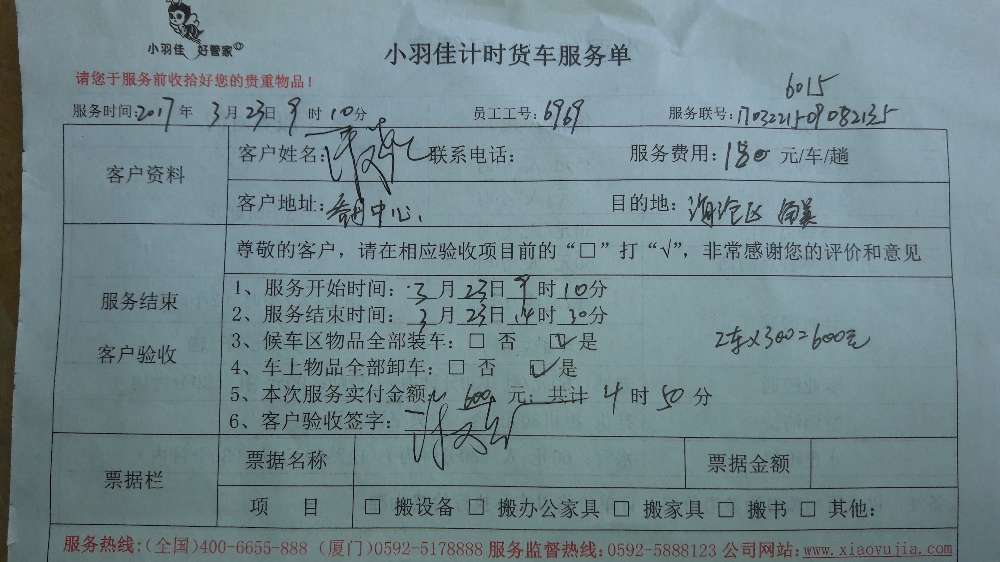 小羽佳 好管家
小羽佳计时货车服务单
请您于服务前收拾好您的贵重物品！
6015
服务时间:2017年 3月23日9时10分 员工工号:6969 服务联号:1703221509082135
客户资料
客户姓名: 联系电话: 服务费用:180元/车/趟
客户地址: 中心 目的地:海沧区
服务结束
客户验收
尊敬的客户，请在相应验收项目前的“□”打“√”，非常感谢您的评价和意见
1、服务开始时间：3月23日9时10分
2、服务结束时间：3月23日14时30分
3、候车区物品全部装车：□ 否 ☑是
2车×300=600元
4、车上物品全部卸车：□ 否 ☑是
5、本次服务实付金额 600 元；共计 4 时 50 分
6、客户验收签字：
票据栏
票据名称 票据金额
项 目 □ 搬设备 □ 搬办公家具 □ 搬家具 □ 搬书 □ 其他：
服务热线:(全国)400-6655-888 (厦门)0592-5178888 服务监督热线:0592-5888123 公司网站:www.xiaoyujia.com